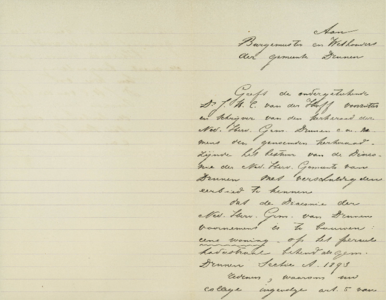 Aan
Burgemeester en Wethouders
der gemeente Drunen
Geeft de ondergeteekende
Ds J. W. C. van der Hoff, voorzitter
en van den kerkeraad der
Ned. Herv. Gem. Drunen
mens den genoemden kerkeraad
zijnde het bestuur van de
nie der Ned. Herv. Gemeente van
Drunen met verschuldigden
eerbied te kennen
dat de Diaconie der
Ned. Herv. Gem. van Drunen
voornemens is te bouwen
eene woning op het perceel
kadastraal bekend als gem.
Drunen Sectie A. 1893
waarom uw
college ingevolge art 5 van